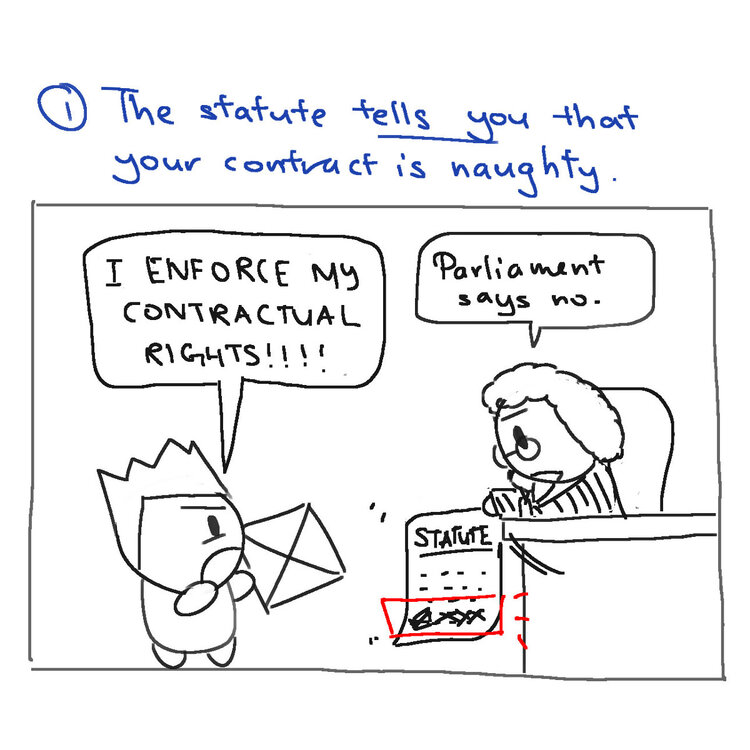 ① The statute tells you that
your contract is naughty.
I ENFORCE MY
CONTRACTUAL
RIGHTS!!!!
Parliament
says no.
STATUTE